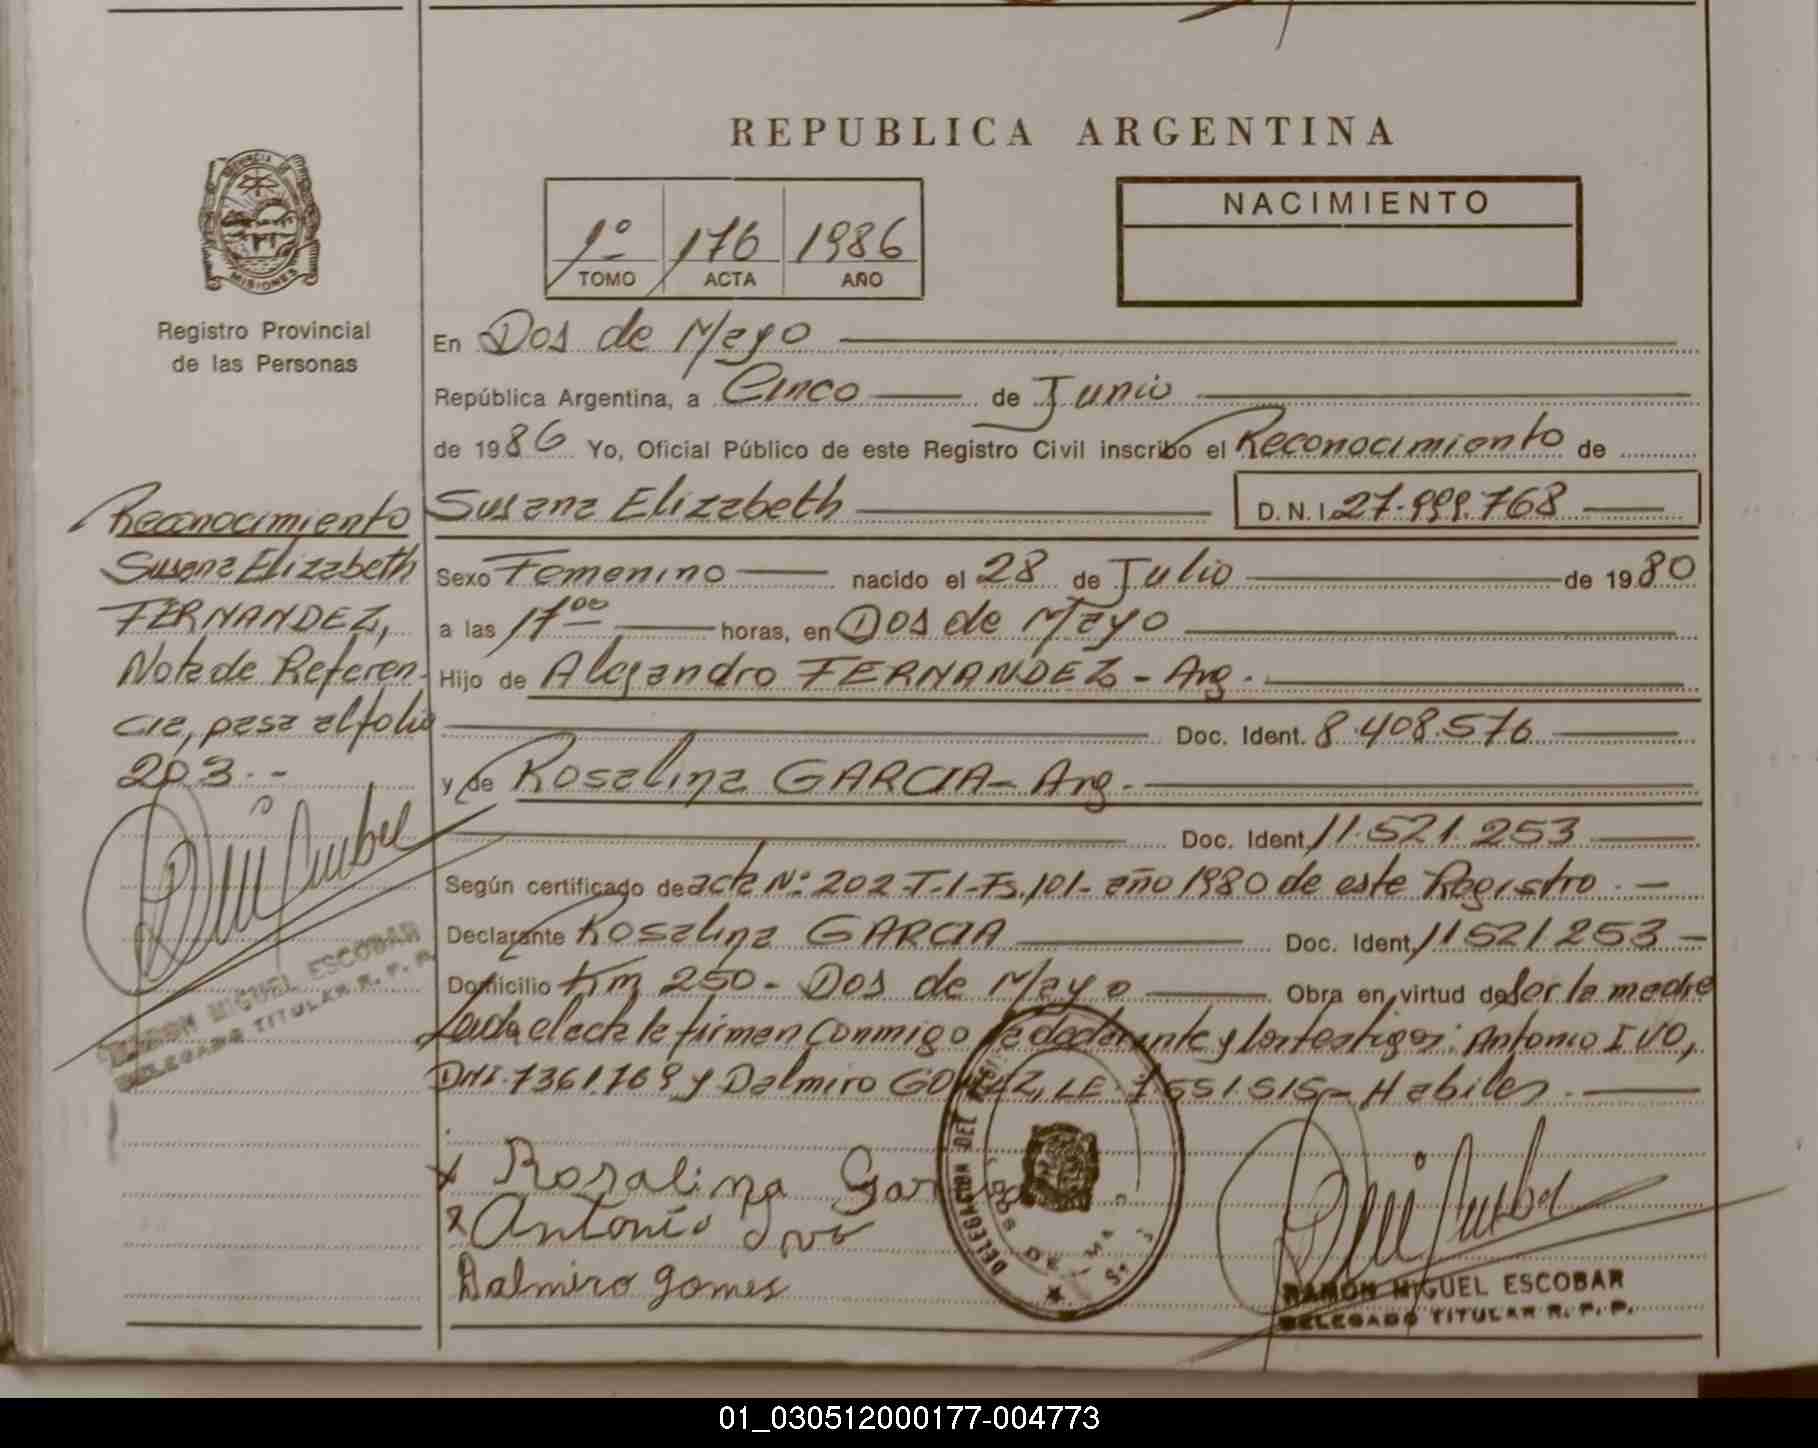 REPUBLICA ARGENTINA
PROVINCIA DE
MISIONES
Registro Provincial
de las Personas
1º 176 1986
TOMO ACTA AÑO
NACIMIENTO
En Dos de Mayo
República Argentina, a Cinco de Junio
de 1986 Yo, Oficial Público de este Registro Civil inscribo el Reconocimiento de
Susana Elizabeth D.N.I. 27.999.768
Sexo Femenino nacido el 28 de Julio de 1980
a las 17 00 horas, en Dos de Mayo
Hijo de Alejandro FERNANDEZ - Arg.
Doc. Ident. 8.408.576
y de Rosalina GARCIA - Arg.
Doc. Ident. 11.521.253
Según certificado de acta Nº 202-T-1-Fs.101- año 1980 de este Registro.-
Declarante Rosalina GARCIA Doc. Ident. 11521253-
Domicilio Km 250 - Dos de Mayo Obra en virtud de ser la madre
Leida el acta la firman conmigo la declarante y los testigos: Antonio IVO,
DNI. 7361.769 y Dalmiro GOMEZ, LE. 7551.515 - Habiles.
Reconocimiento
Susana Elizabeth
FERNANDEZ,
Nota de Referen-
cia, pasa al folio
203.-
RAMON MIGUEL ESCOBAR
DELEGADO TITULAR R. P. P.
x Rosalina Garcia
x Antonio Ivo
Dalmiro gomes
DELEGACION DEL
DOS DE MAYO
RAMON MIGUEL ESCOBAR
DELEGADO TITULAR R. P. P.
01_030512000177-004773